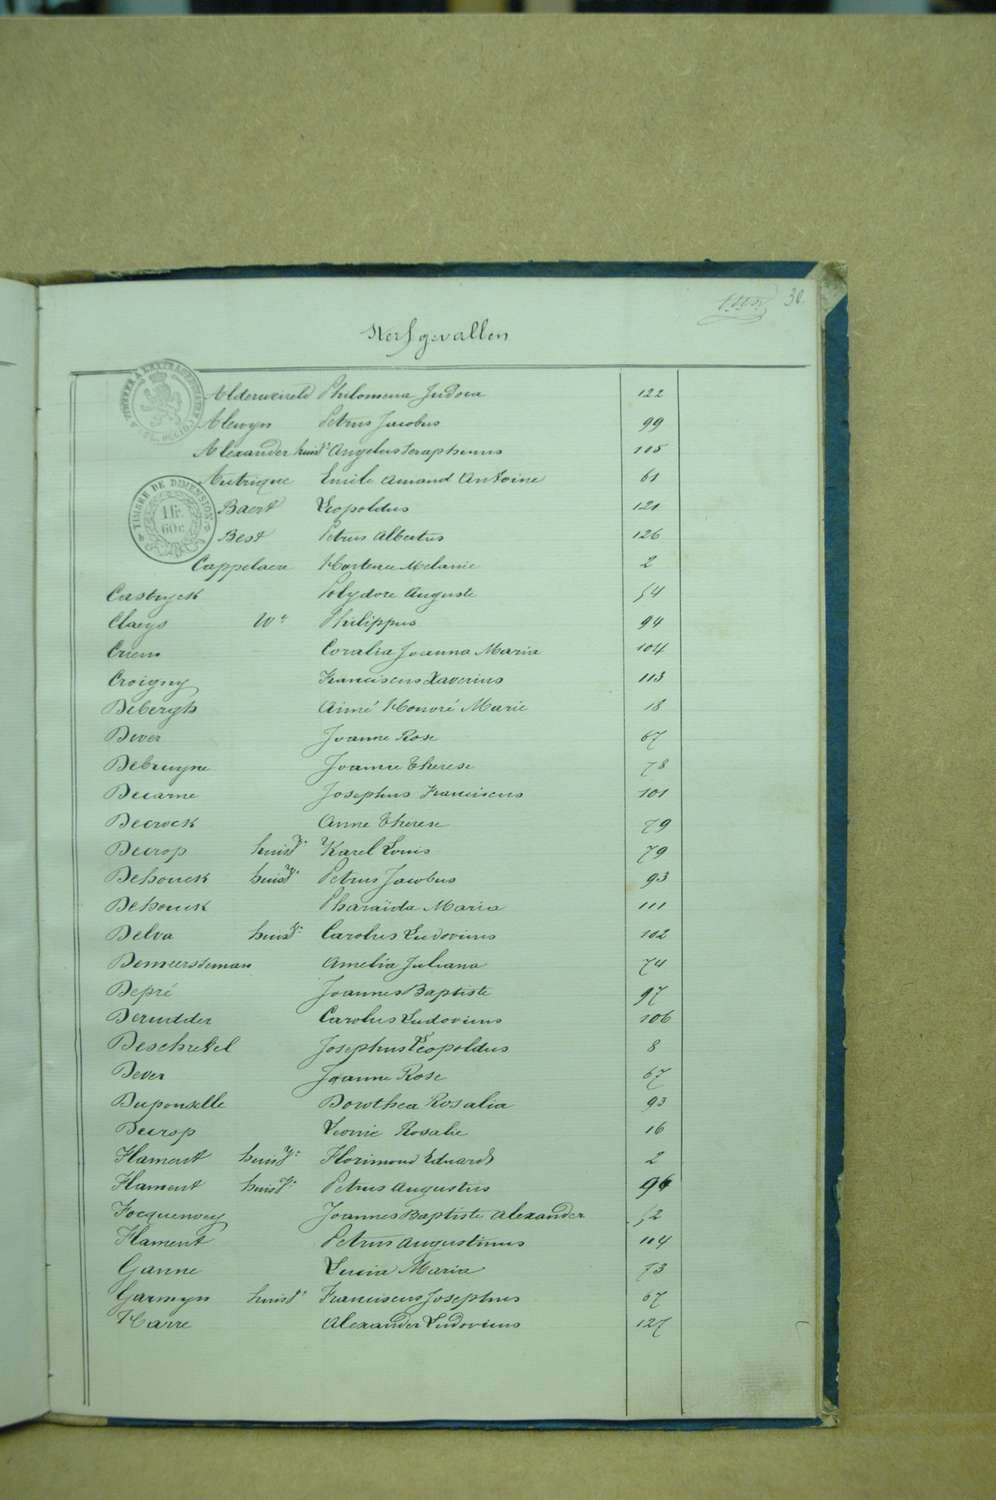 30
Sterfgevallen
TIMBRE DE DIMENSION
1 fr.
60 c.
Alderweireld Philomena Judoca 122
Alewyn Petrus Jacobus 99
Alexander huisv: Angelus Seraphinus 115
Autrique Emile Amand Antoine 61
Baert Leopoldus 121
Best Petrus Albertus 126
Cappelaere Hortence Melanie 2
Castryck Polydore Auguste 54
Claeys We Philippus 94
Coralia Joanna Maria 104
Croigny Franciscus Xaverius 113
Debergh Aimé Honoré Marie 18
Dever Joanne Rose 67
Debruyne Joanne Therese 78
Decarne Josephus Franciscus 101
Decrock Anne Therese 79
Decrop huisv: Karel Louis 79
Dehouck huisv: Petrus Jacobus 93
Dehouck Pharaïda Maria 111
Delva huisv: Carolus Ludovicus 102
Demeersseman Amelia Juliana 74
Depré Joannes Baptiste 97
Deruddder Carolus Ludovicus 106
Deschretel Josephus Leopoldus 8
Dever Joanne Rose 67
Duponselle Dorothea Rosalia 93
Decrop Leonie Rosalie 16
Flament huisv: Florimond Eduard 2
Flament huisv: Petrus Augustus 96
Focquenoey Joannes Baptiste Alexander 52
Flament Petrus Augustinus 104
Ganne Lucia Maria 73
Garmyn huisv: Franciscus Josephus 67
Harre Alexander Ludovicus 127